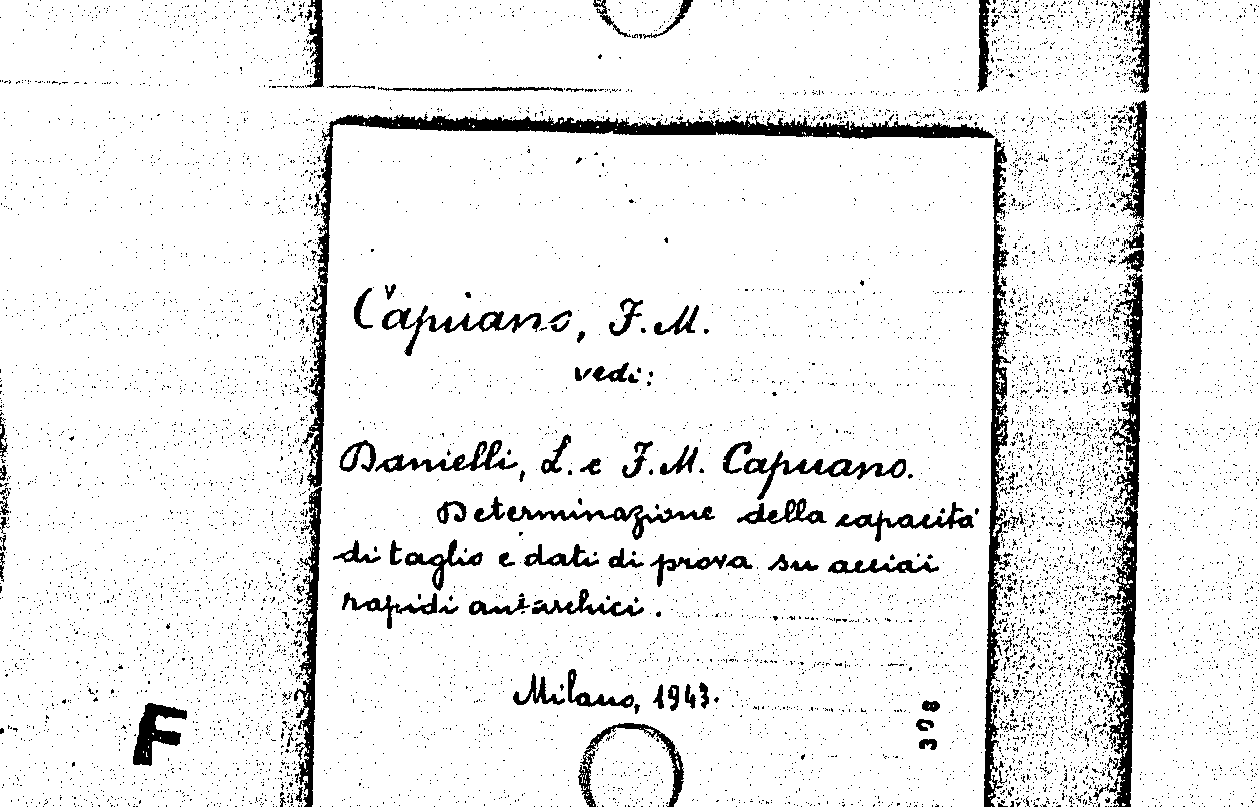 Capuano, F.M.
vedi:
Danielli, L. e F.M. Capuano.
Determinazione della capacità
di taglio e dati di prova su acciai
rapidi autarchici.
Milano, 1943.
308
F